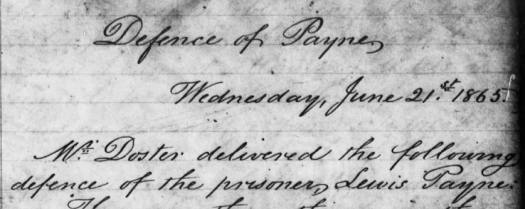 Defence of Payne,
Wednesday, June 21st 1865.
Mr. Doster delivered the following
defence of the prisoner, Lewis Payne.